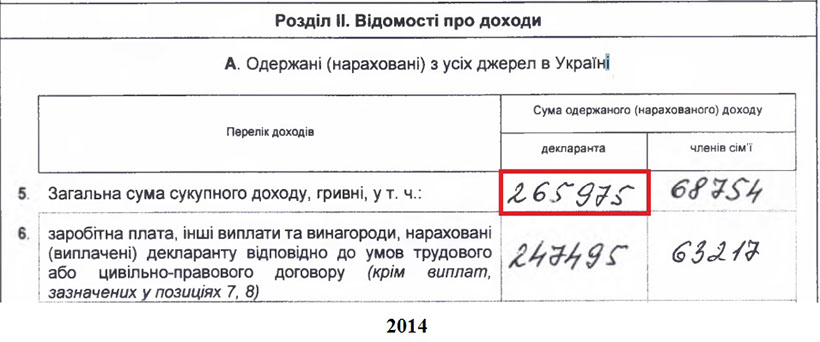 Розділ II. Відомості про доходи
А. Одержані (нараховані) з усіх джерел в Україні
Перелік доходів
Сума одержаного (нарахованого) доходу
декларанта
членів сім'ї
5. Загальна сума сукупного доходу, гривні, у т. ч.: 265975 68754
6. заробітна плата, інші виплати та винагороди, нараховані
(виплачені) декларанту відповідно до умов трудового
або цивільно-правового договору (крім виплат,
зазначених у позиціях 7, 8)
247495 63217
2014